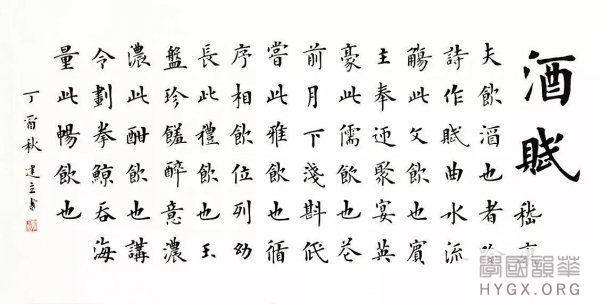 酒賦
嵇
夫飲酒也者
詩作賦曲水流
觴此文飲也賓
主奉迎聚宴英
豪此儒飲也花
前月下淺斟低
嘗此雅飲也循
序相飲位列幼
長此禮飲也玉
盤珍饈醉意濃
濃此酣飲也講
令劃拳鯨吞海
量此暢飲也
丁酉秋建立書
學國韻華
HYGX.ORG